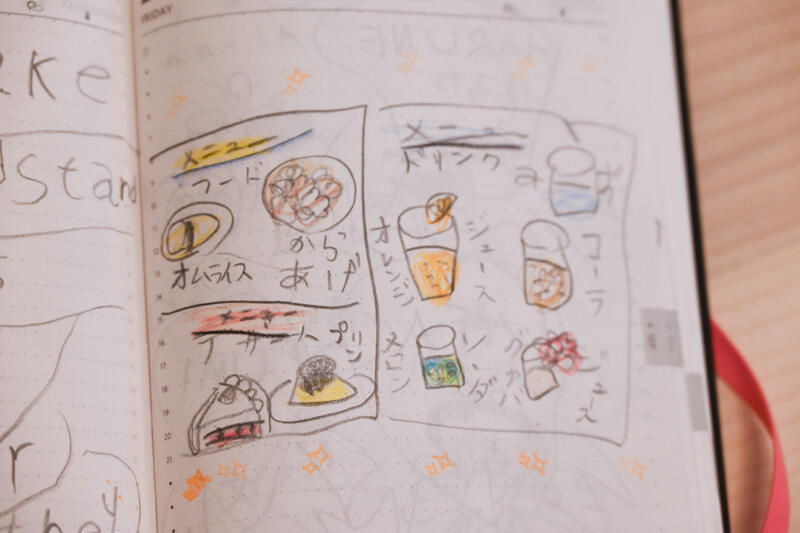 FRIDAY
ke
stand
r
they
メニュー
フード
オムライス
から
あげ
メニュー
デザート
プリン
メニュー
ドリンク
オレンジ
ジュース
コーラ
メロン
ソーダ
グァバ
ジュース